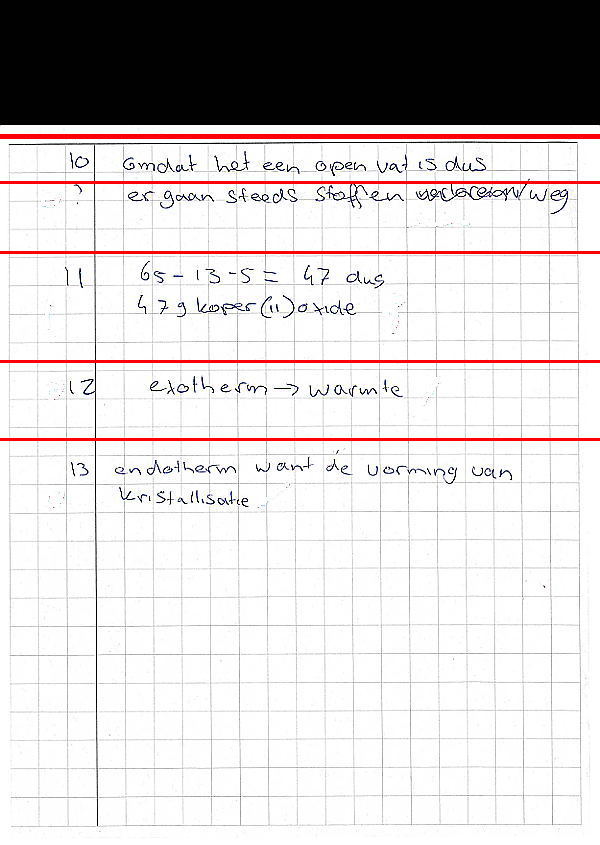 10 Omdat het een open vat is dus
? er gaan steeds stoffen weg
11 65 - 13 - 5 = 47 dus
47 g koper(II)oxide
12 exotherm → warmte
13 endotherm want de vorming van
kristallisatie